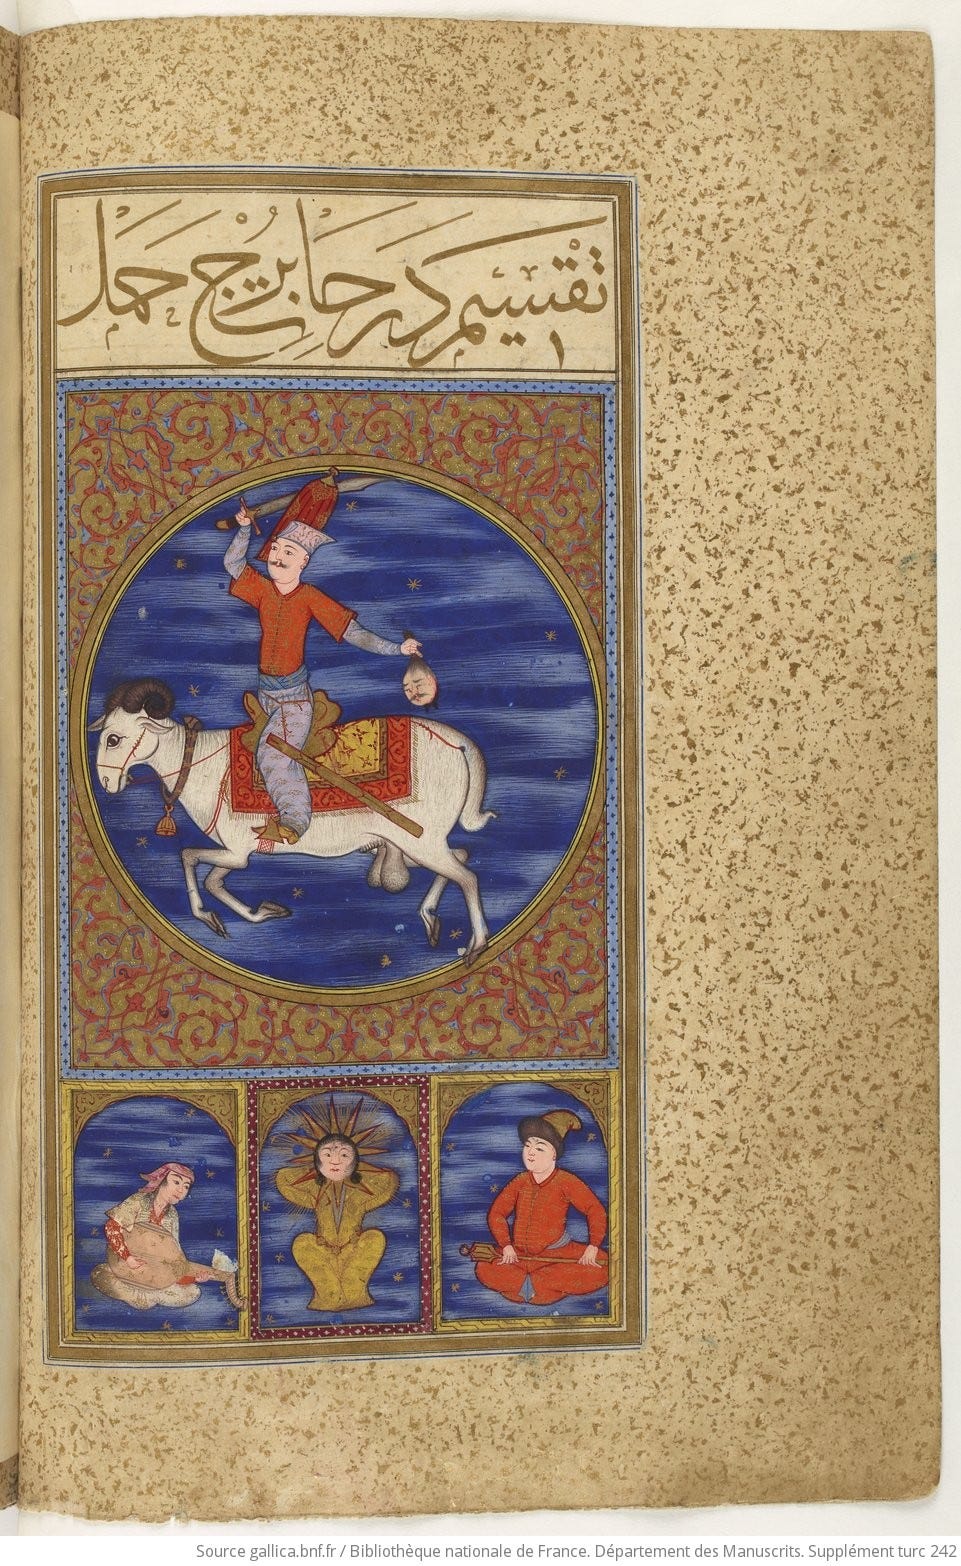 تقسیم درجات برج حمل
Source gallica.bnf.fr / Bibliothèque nationale de France. Département des Manuscrits. Supplément turc 242